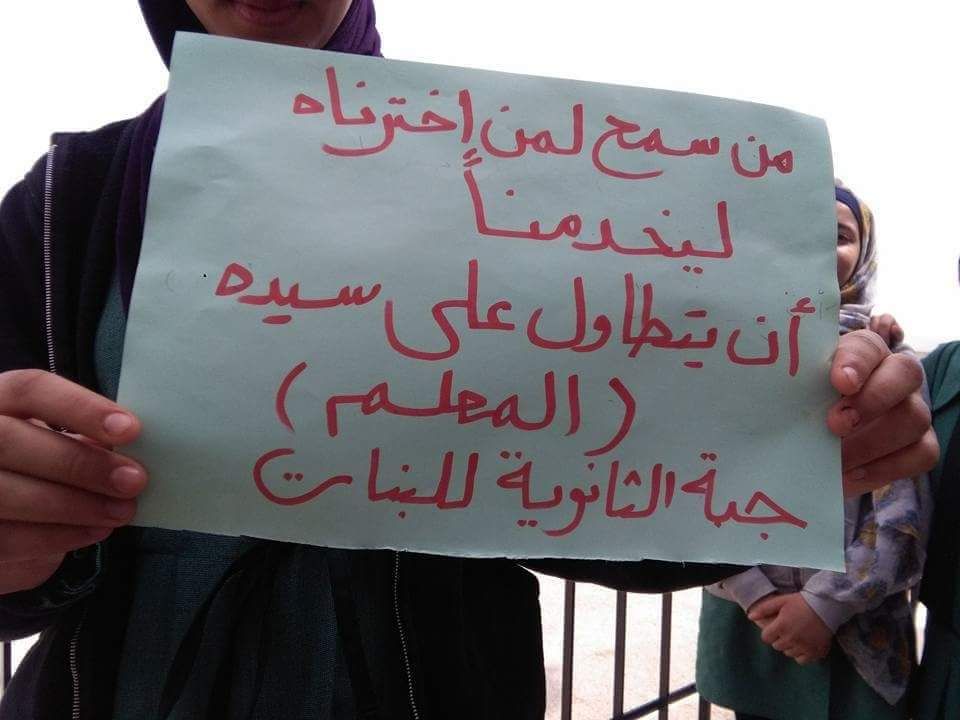 من سمح لمن إخترناه
ليخدمناً
أن يتطاول على سيده
(المعلم)
جبة الثانوية للبنات